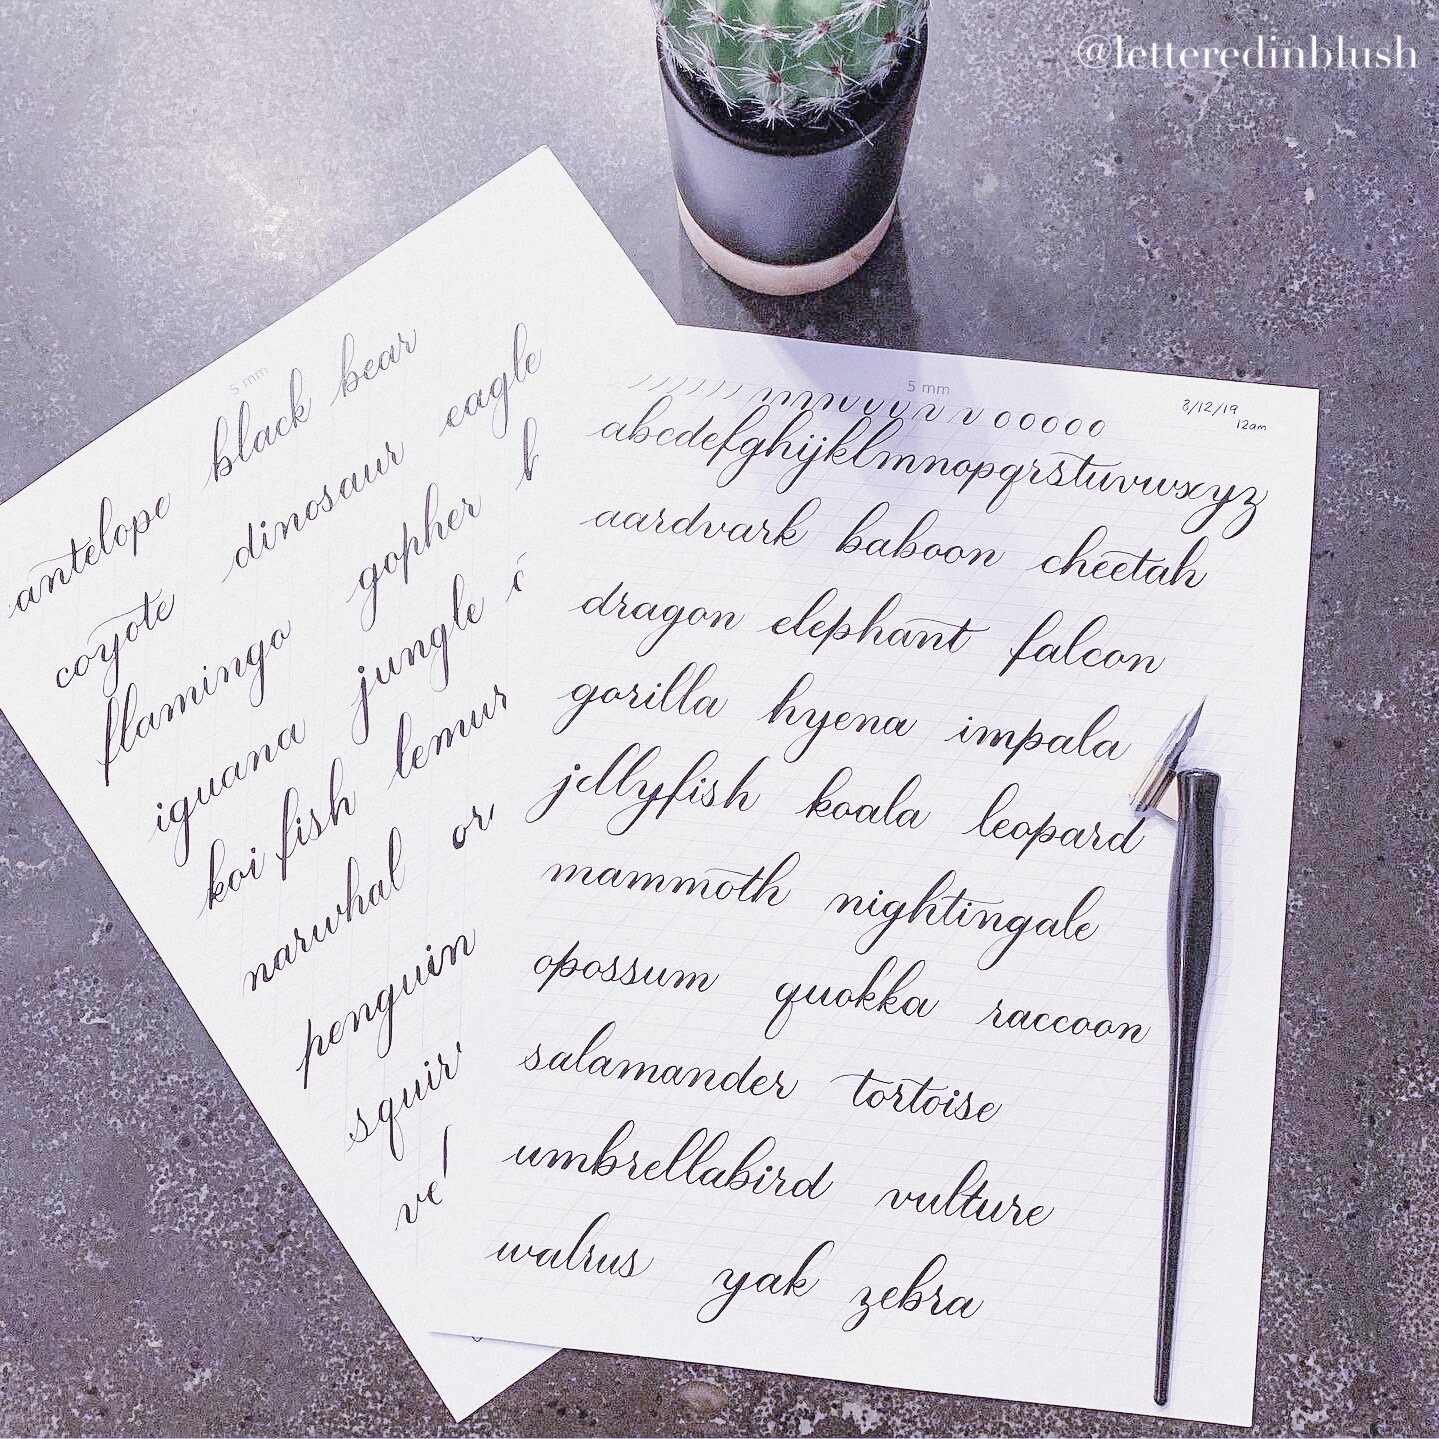 @letteredinblush
5 mm
antelope black bear
coyote dinosaur eagle
flamingo gopher
iguana jungle
koi fish lemur
narwhal or
penguin
squir
ve
5 mm
8/12/19
12am
abcdefghijklmnopqrstuvwxyz
aardvark baboon cheetah
dragon elephant falcon
gorilla hyena impala
jellyfish koala leopard
mammoth nightingale
opossum quokka raccoon
salamander tortoise
umbrellabird vulture
walrus yak zebra